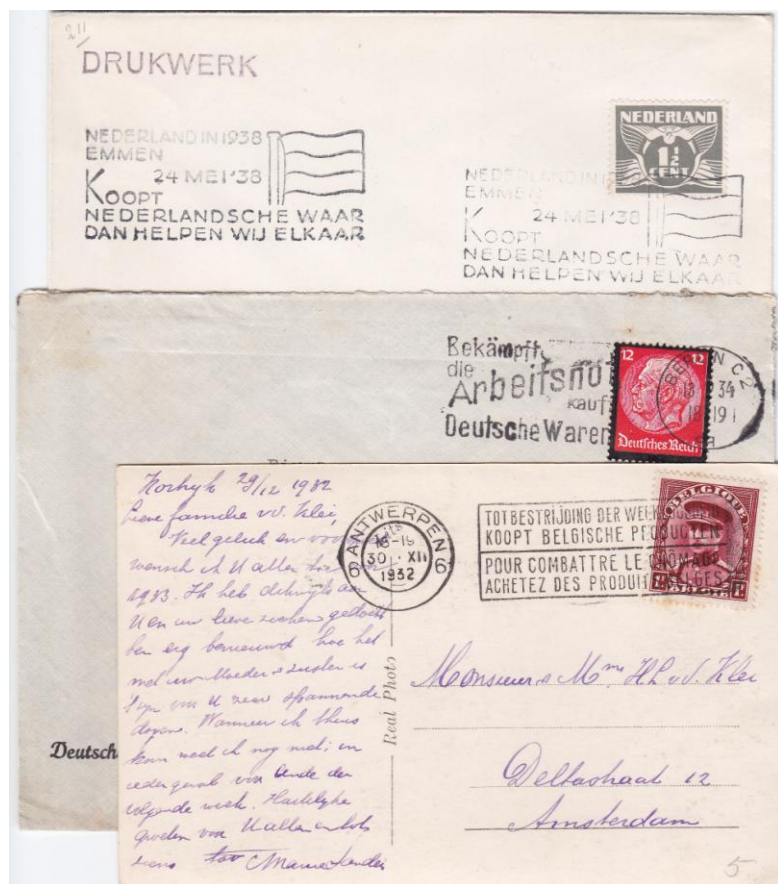 211
DRUKWERK
NEDERLAND IN 1938
EMMEN
24 MEI '38
KOOPT
NEDERLANDSCHE WAAR
DAN HELPEN WIJ ELKAAR
NEDERLAND
1½
CENT
NEDERLAND IN 19
EMMEN
24 MEI '38
KOOPT
NEDERLANDSCHE WAAR
DAN HELPEN WIJ ELKAAR
Bekämpft
die
Arbeitsno
kauft
Deutsche Waren
12 12
Deutsches Reich
BERLIN C2
34
18-19
a
Deutsch
29/12 1932
Lieve familie v.d. Klei,
Veel geluk en voor
wensch ik U allen
1933. Ik heb dikwijls aan
U en uw lieve gedacht
ben erg benieuwd hoe het
met uw Moeder & zuster is
zijn voor U zeer spannende
dagen. Wanneer ik thuis
kom weet ik nog niet; in
ieder geval
volgende week. Hartelijke
groeten van U allen
ANTWERPEN
6 6
18-19
30 XII
1932
TOT BESTRIJDING DER
KOOPT BELGISCHE PRODUCTEN
POUR COMBATTRE LE CHOMAGE
ACHETEZ DES PRODUITS BELGES
BELGIQUE
Real Photo
Monsieur & Mme H. v.d. Klei
Deltastraat 12
Amsterdam
5